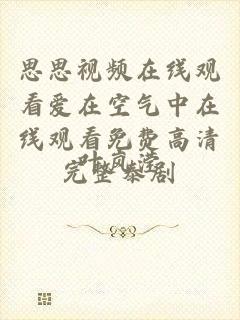 思思视频在线观
看爱在空气中在
线观看免费高清
完整泰剧
叶岚滢